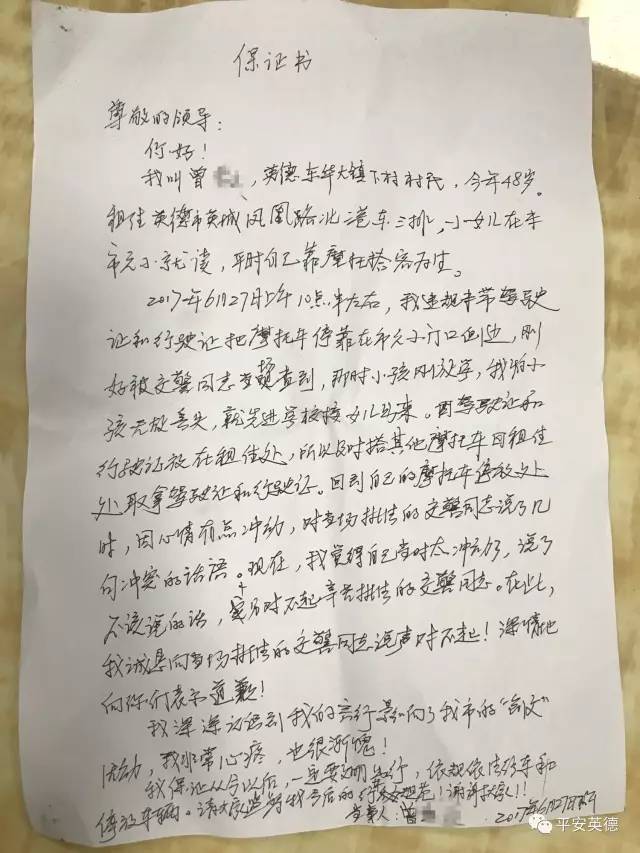 保证书
尊敬的领导：
你好！
我叫曾，英德东华大镇下村村民，今年48岁。
租住英德市英城凤凰路北2巷东三排，小女儿在本
市元小就读，平时自己靠摩托搭客为生。
2017年6月27日上午10点半左右，我违规未带驾驶
证和行驶证把摩托车停靠在市元小门口侧边，刚
好被交警同志查到，那时小孩刚放学，我怕小
孩无故丢失，就先进学校接女儿出来。因驾驶证和
行驶证放在租住处，所以及时搭其他摩托车回租住
处取拿驾驶证和行驶证。回到自己的摩托车停放处
时，因心情有点冲动，对当场执法的交警同志说了几
句冲突的话语。现在，我觉得自己当时太冲动了，说了
不该说的话，实在对不起辛苦执法的交警同志。在此，
我诚恳向当场执法的交警同志说声对不起！深情地
向你们表示道歉！
我深深认识到我的言行影响了我市的“创文”
活动，我非常心疼，也很渐愧！
我保证从今以后，一定要文明出行，依规依法行车和
停放车辆。请大家监督我今后的行！谢谢大家！！
当事人：曾
2017年6月27日
平安英德